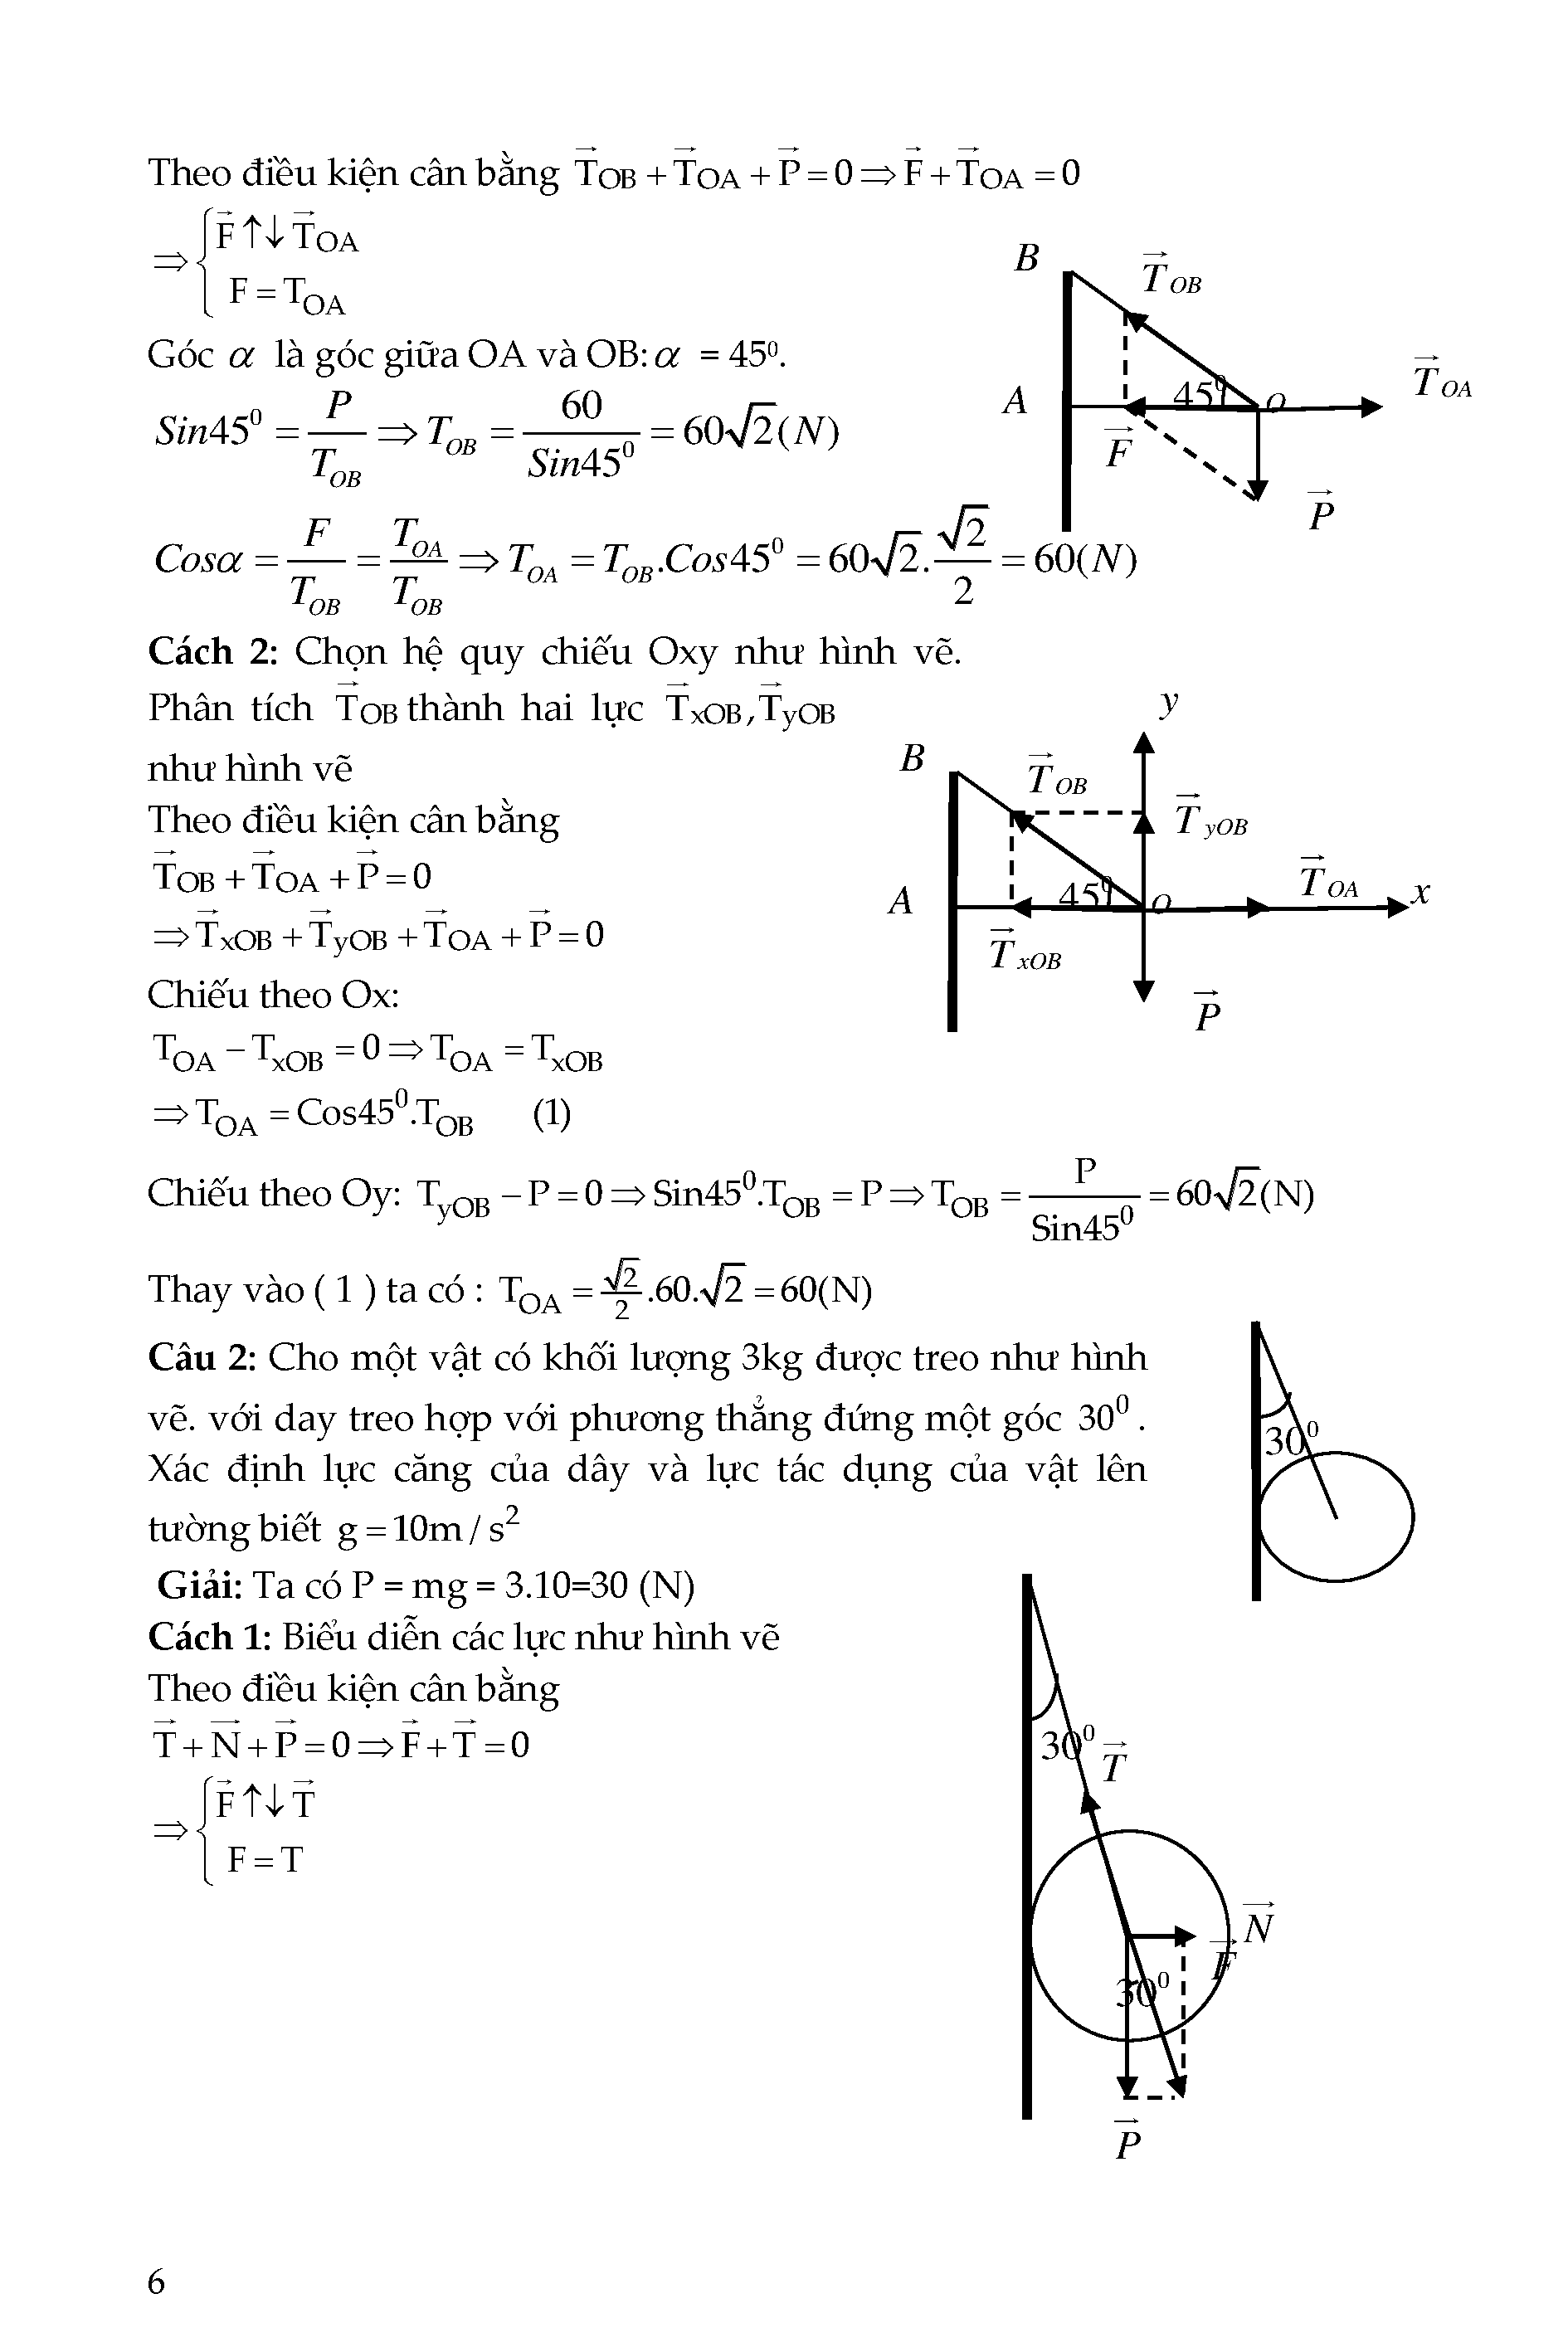 Theo điều kiện cân bằng $\vec{T}_{OB}+\vec{T}_{OA}+\vec{P}=0\Rightarrow\vec{F}+\vec{T}_{OA}=0$
$\Rightarrow\begin{cases}\vec{F}\uparrow\downarrow\vec{T}_{OA}\\F=T_{OA}\end{cases}$
Góc $\alpha$ là góc giữa OA và OB: $\alpha$ = 45⁰.
$Sin45^0=\frac{P}{T_{OB}}\Rightarrow T_{OB}=\frac{60}{Sin45^0}=60\sqrt{2}(N)$
$Cos\alpha=\frac{F}{T_{OB}}=\frac{T_{OA}}{T_{OB}}\Rightarrow T_{OA}=T_{OB}.Cos45^0=60\sqrt{2}.\frac{\sqrt{2}}{2}=60(N)$
B
$\vec{T}_{OB}$
A
45⁰
O
$\vec{T}_{OA}$
$\vec{F}$
$\vec{P}$
Cách 2: Chọn hệ quy chiếu Oxy như hình vẽ.
Phân tích $\vec{T}_{OB}$ thành hai lực $\vec{T}_{xOB},\vec{T}_{yOB}$
như hình vẽ
Theo điều kiện cân bằng
$\vec{T}_{OB}+\vec{T}_{OA}+\vec{P}=0$
$\Rightarrow\vec{T}_{xOB}+\vec{T}_{yOB}+\vec{T}_{OA}+\vec{P}=0$
Chiếu theo Ox:
$T_{OA}-T_{xOB}=0\Rightarrow T_{OA}=T_{xOB}$
$\Rightarrow T_{OA}=Cos45^0.T_{OB}$ (1)
y
B
$\vec{T}_{OB}$
$\vec{T}_{yOB}$
A
45⁰
O
$\vec{T}_{OA}$
x
$\vec{T}_{xOB}$
$\vec{P}$
Chiếu theo Oy: $T_{yOB}-P=0\Rightarrow Sin45^0.T_{OB}=P\Rightarrow T_{OB}=\frac{P}{Sin45^0}=60\sqrt{2}(N)$
Thay vào ( 1 ) ta có : $T_{OA}=\frac{\sqrt{2}}{2}.60.\sqrt{2}=60(N)$
Câu 2: Cho một vật có khối lượng 3kg được treo như hình
vẽ. với day treo hợp với phương thẳng đứng một góc $30^0$ .
Xác định lực căng của dây và lực tác dụng của vật lên
tường biết $g=10m/s^2$
30⁰
Giải: Ta có P = mg = 3.10=30 (N)
Cách 1: Biểu diễn các lực như hình vẽ
Theo điều kiện cân bằng
$\vec{T}+\vec{N}+\vec{P}=0\Rightarrow\vec{F}+\vec{T}=0$
$\Rightarrow\begin{cases}\vec{F}\uparrow\downarrow\vec{T}\\F=T\end{cases}$
30⁰
$\vec{T}$
$\vec{N}$
$\vec{F}$
30⁰
$\vec{P}$
6